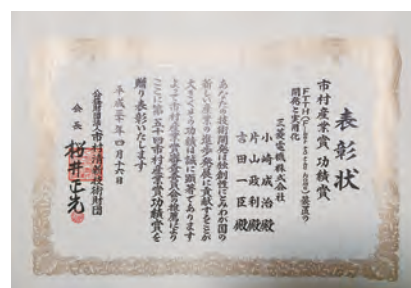 表彰状
市村産業賞 功績賞
開発と実用化
三菱電機株式会社
小崎成治殿
片山政利殿
吉田一臣殿
あなたの技術開発は独創性にとみわが国の
新しい産業の進歩発展に貢献することが
大きくその功績は誠に顕著であります
よって市村産業賞審査委員会の推薦により
ここに第五十回市村産業賞功績賞を
贈り表彰いたします
平成三十年四月十六日
公益財団法人市村清新技術財団
会長 桜井正光